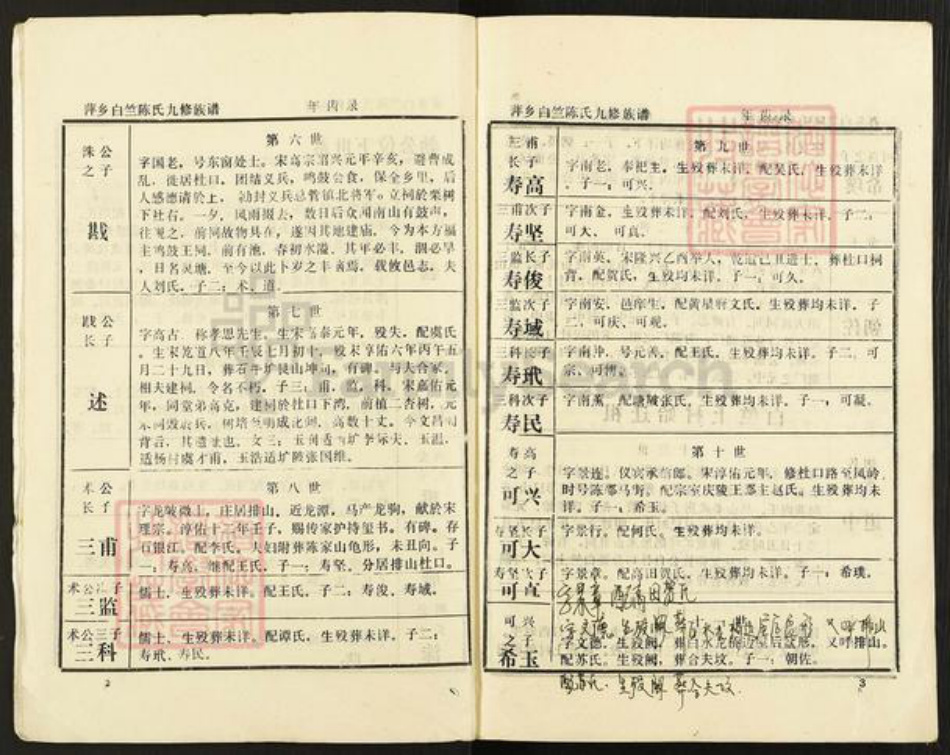 萍乡白竺陈氏九修族谱
年齿录
洙公
之子
戡
第六世
字国老,号东窗处士。宋高宗绍兴元年辛亥,避曹成
乱,徙居杜口,团结义兵,鸣鼓会食,保全乡里,后
人感德请於上,勅封义兵总管镇北将军。立祠於栗树
下社右。一夕,风雨掇去,数日后众闻南山有鼓声,
往视之,前祠故物具在,遂因其地建庙,今为本方福
主鸣鼓王祠。前有池,春初水溢,其年必丰,涸必旱
,日名灵塘,至今以此卜岁之丰啬焉,载攸邑志,夫
人刘氏。子二:术、道。
戡公
长子
述
第七世
字高古,称孝思先生,生宋嘉泰元年,殁失。配虞氏
,生宋
道八年壬辰七月初十,殁宋淳佑六年丙午五
月二十九日,葬石牛圹艮山坤向,有碑。与夫合冢。
相夫建祠,令名不朽。子三:甫,监,科。宋嘉佑元
年,同堂弟高克,建祠於杜口下湾,前植二杏树,元
末祠毁於兵,树培
明成比倒,高数十丈。今文昌阁
背后,其遗址也。女三:玉
适
圹李际夫,玉温,
适杨村虞才甫,玉浩适圹陂张国维。
术公
长子
三甫
第八世
字龙陂微上,庄居排山,近龙潭,马产龙驹,献於宋
理宗。淳佑十二年壬子,赐传家护持玺书。有碑。存
石银江。配李氏。夫妇附葬陈家山龟形,未丑向。子
一:寿高,继配王氏,子一:寿坚,分居排山杜口。
术公次子
三监
儒士,生殁葬未详。配王氏,子二:寿浚、寿城。
术公三子
三科
儒士,生殁葬未详。配谭氏,生殁葬未详。子二:
寿玳、寿民。
2
萍乡白竺陈氏九修族谱
年齿录
三甫
长子
寿高
第九世
字南老,奉祀主,生殁葬未详。配吴氏,生殁葬未详
。子一:可兴。
三甫次子
寿坚
字南金,生殁葬未详。配刘氏,生殁葬未详。子二:
可大、可真。
三监长子
寿俊
字南英,宋隆兴乙酉举人,乾道己丑进士,葬杜口祠
背。配贺氏,生殁均未详。子一:可久。
三监次子
寿域
字南安,邑庠生,配黄星野文氏,生殁葬均未详。子
二:可庆、可观。
三科长子
寿玳
字南冲,号元善,配王氏,生殁葬均未详。子二,可
宗、可博。
三科次子
寿民
字南薰,配塘陂张氏,生殁葬均未详。子一:可凝。
寿高
之子
可兴
第十世
字景连,仪宾承信郎。宋淳佑元年,修杜口路至凤岭
,时号陈郡马街。配宗室庆陵王郡主赵氏。生殁葬均未
详。子一:希玉。
寿坚长子
可大
字景行。配何氏,生殁葬均未详。
寿坚次子
可真
字景章。配高田贺氏。生殁葬均未详。子一:希璞。
可兴
之子
希玉
字文德,生殁阙,葬白水龙
皇后殿形,又呼排山。
配苏氏。生殁阙,葬合夫坟。子一:朝佐。
配苏氏,生殁阙 葬合夫坟.
3
FamilySearch